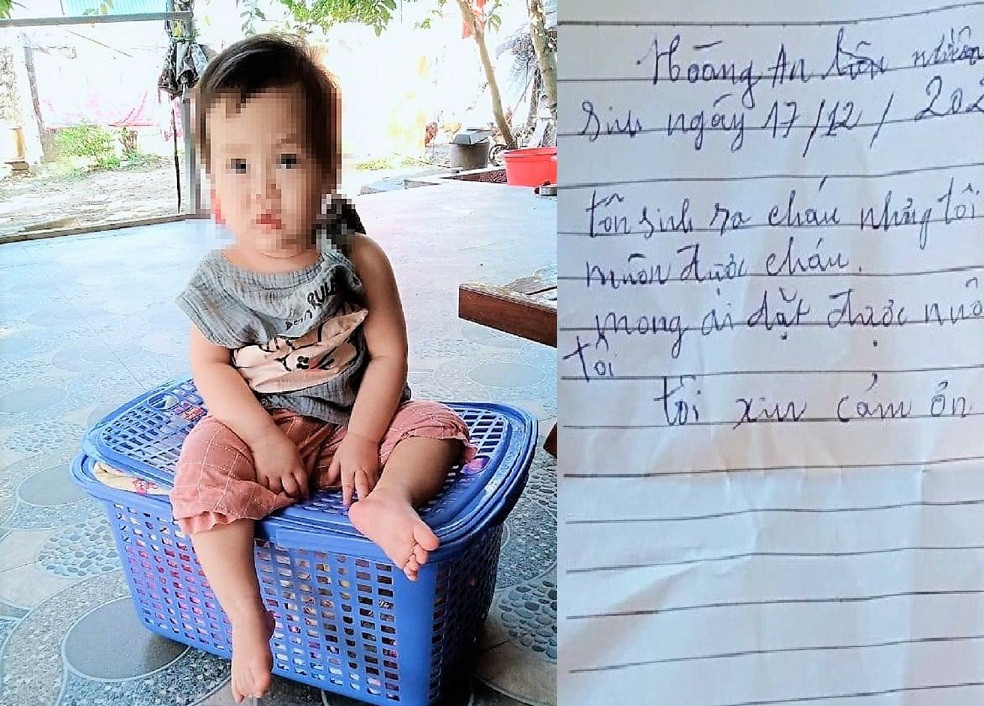 RULE
Hoàng An nhiên
Sinh ngày 17/12/202
tôi sinh ra cháu nhưng tôi
muôn được cháu.
mong ai đặt được nuô
tôi
tôi xin cảm ơn